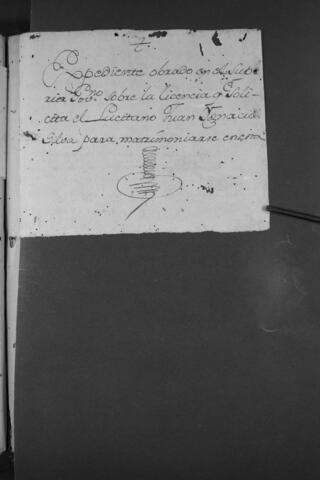 Expediente obrado en el Supe
rior Gov.no sobre la licencia q.e Soli-
cita el Lucitano Juan Ignacio
Silva para matrimoniarse en esta